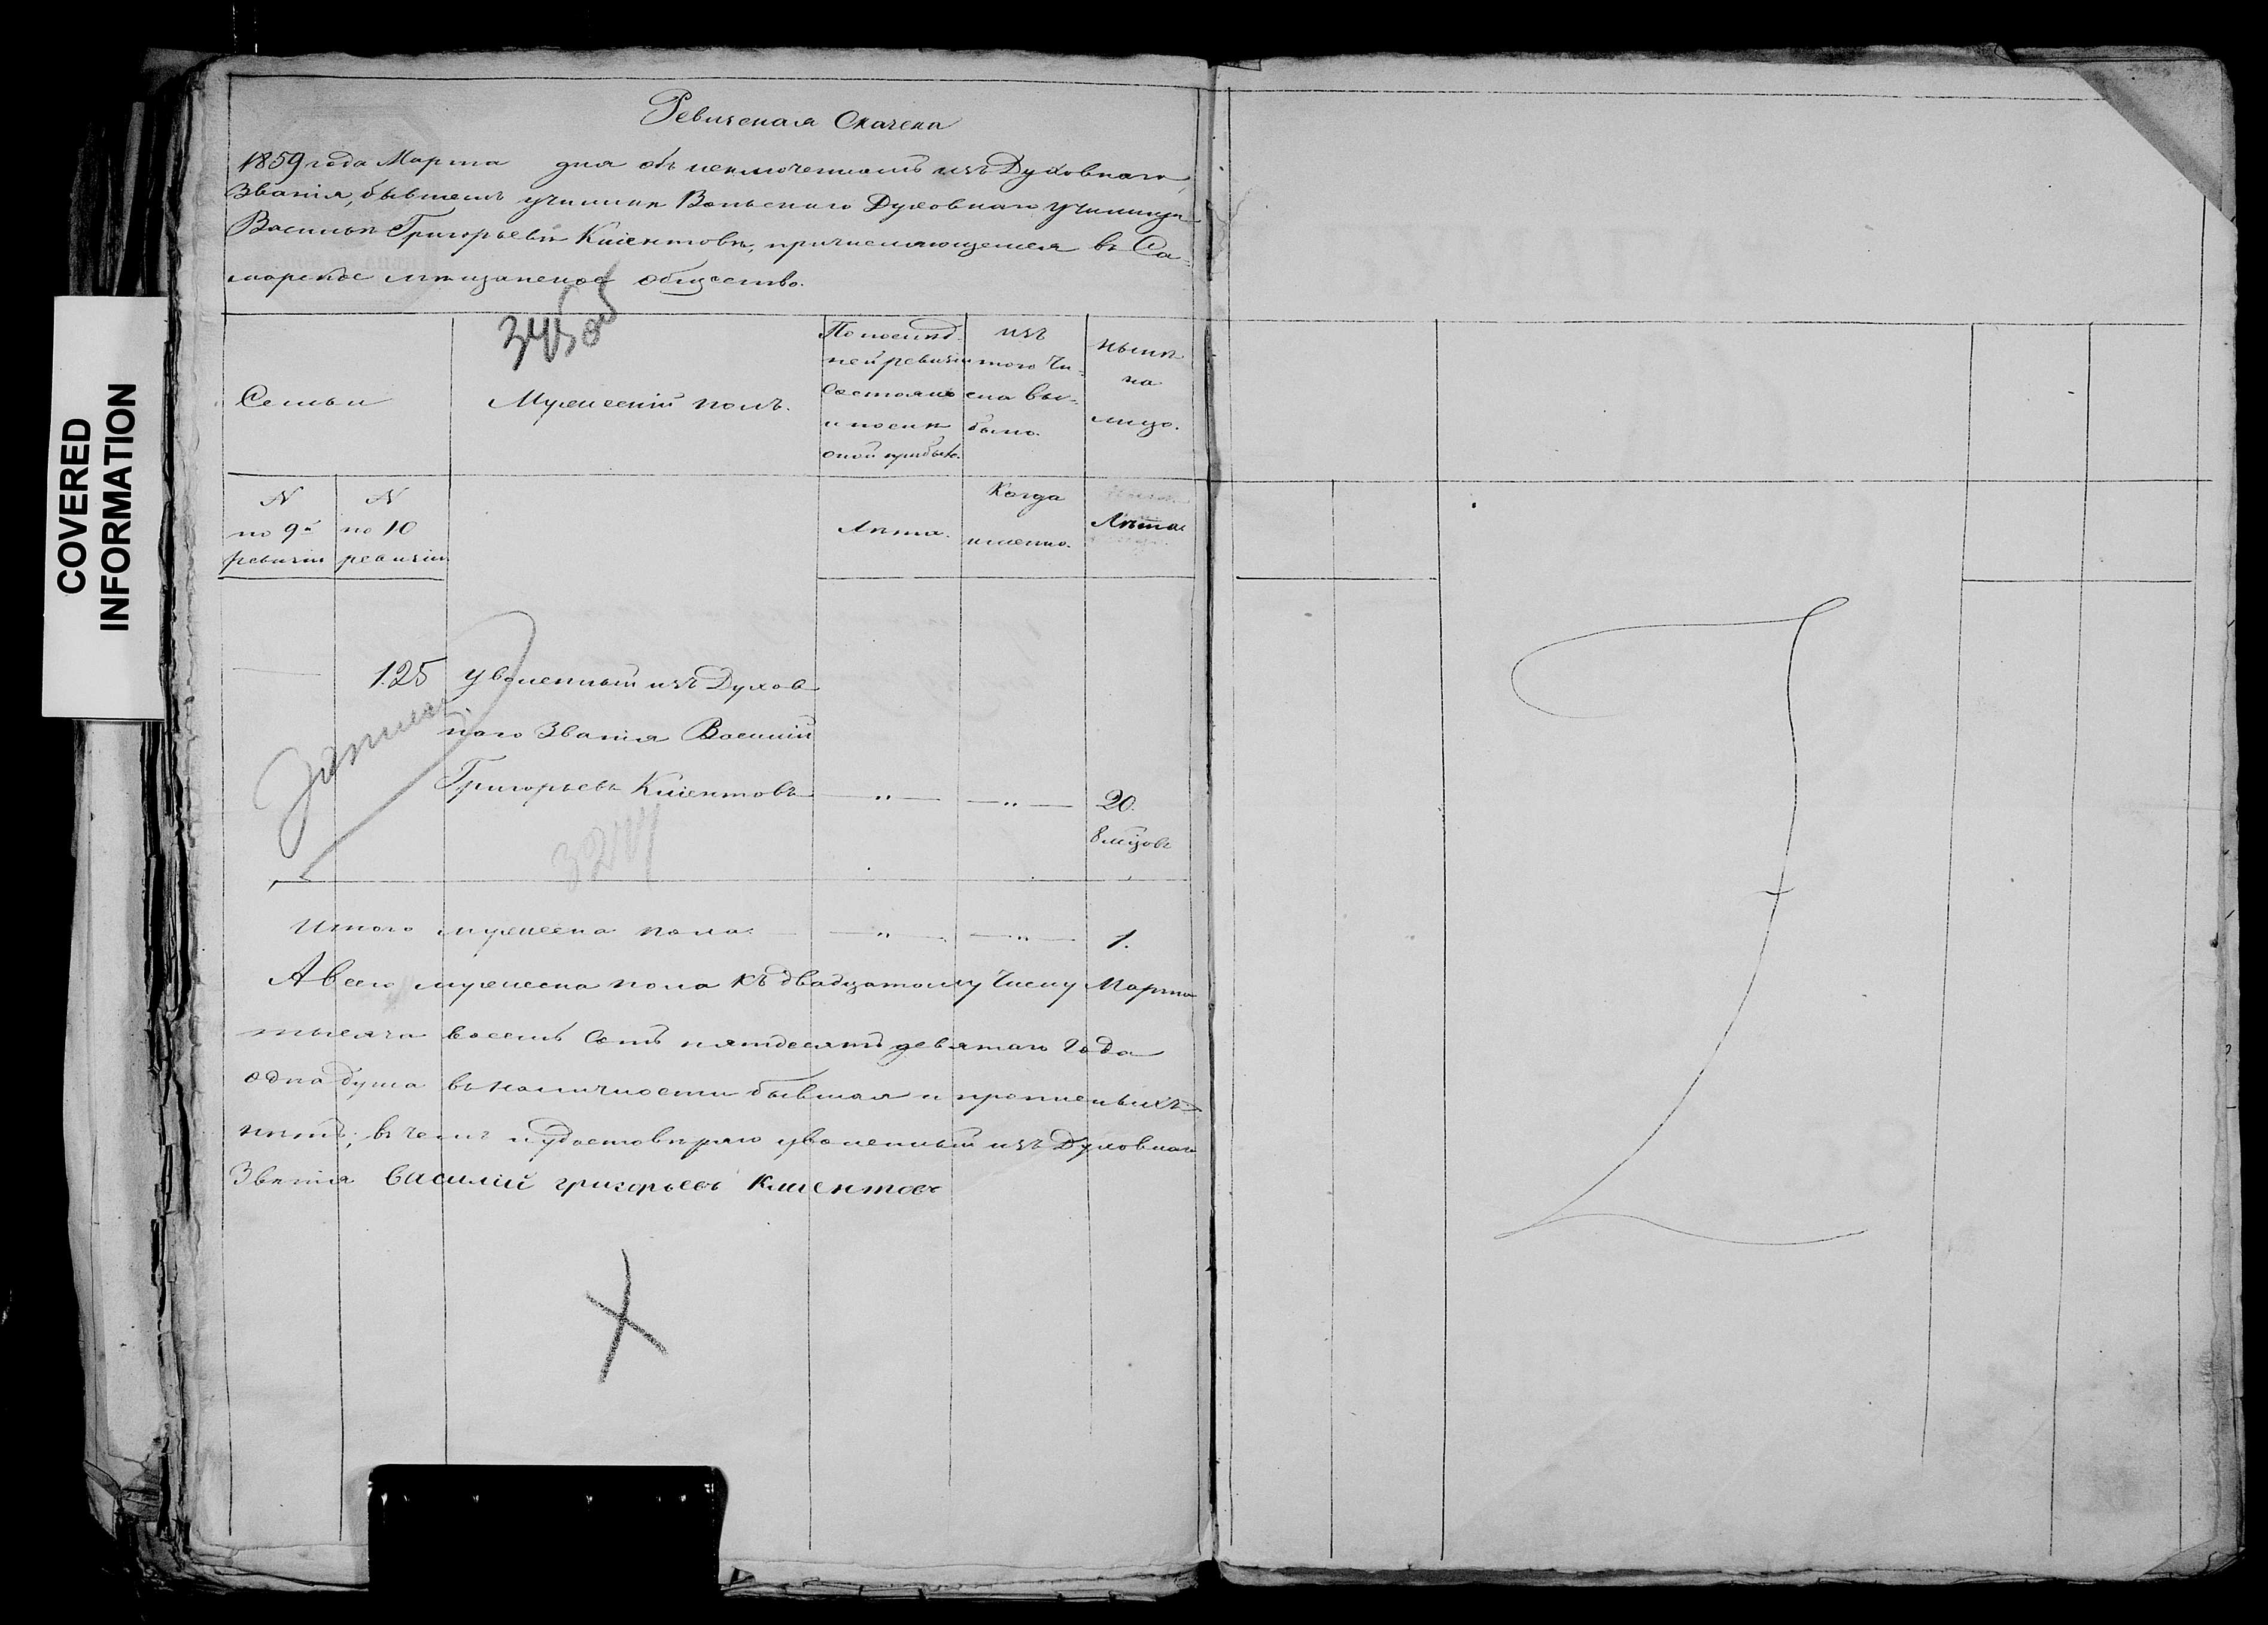 COVERED
INFORMATION
Ревизская Сказка
1859 года Марта дня объ исключенномъ изъ Духовнаго
Званія, бывшемъ ученике Вольскаго Духовнаго училища
Василье Григорьеве Клиентове, причисляющемся въ Са-
марское мещанское общество.
Семьи
Мужеский полъ.
По послед-
ней ревизіи
состояло
и после
оной прибыло.
изъ
того Чи-
сла вы-
было.
ныне
на
лицо.
N
по 9й
ревизіи
N
по 10
ревизіи
Лета.
Когда
именно.
Лета
125 уволенный изъ Духов
наго Званія Василий
Григорьевъ Клиентовъ — " — — " — 20.
8 мцовъ
Итого мужеска пола. — " — — " — 1.
А всего мужеска пола къ двадцатому Числу Марта
тысяча восемь Сотъ пятдесятъ девятаго Года
одна душа въ наличности бывшая и прописныхъ
нетъ; въ чемъ и удостоверяю уволенный изъ Духовнаго
Званія Василий григорьевъ Клиентовъ